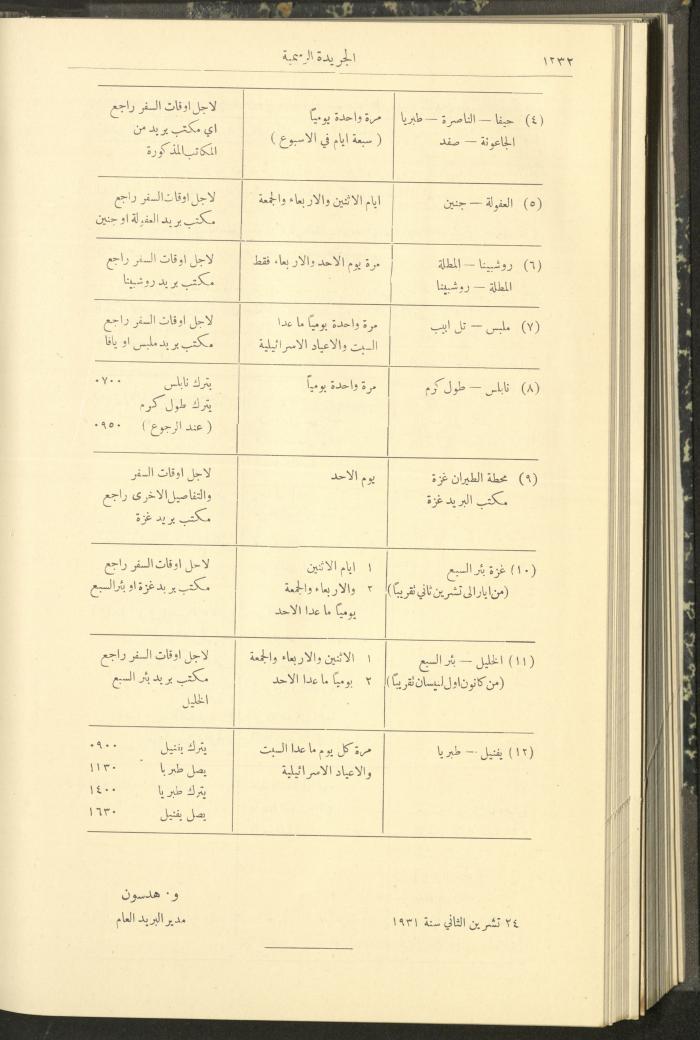 ١٢٣٢
الجريدة الرسمية
(٤) حيفا — الناصرة — طبريا
الجاعونة — صفد
مرة واحدة يومياً
( سبعة ايام في الاسبوع )
لاجل اوقات السفر راجع
اي مكتب بريد من
المكاتب المذكورة
(٥) العفولة — جنين
ايام الاثنين والاربعاء والجمعة
لاجل اوقات السفر راجع
مكتب بريد العفولة او جنين
(٦) روشبينا — المطلة
المطلة — روشبينا
مرة يوم الاحد والاربعاء فقط
لاجل اوقات السفر راجع
مكتب بريد روشبينا
(٧) ملبس — تل ابيب
مرة واحدة يومياً ما عدا
السبت والاعياد الاسرائيلية
لاجل اوقات السفر راجع
مكتب بريد ملبس او يافا
(٨) نابلس — طول كرم
مرة واحدة يومياً
يترك نابلس ٠٧٠٠
يترك طول كرم
( عند الرجوع ) ٠٩٥٠
(٩) محطة الطيران غزة
مكتب البريد غزة
يوم الاحد
لاجل اوقات السفر
والتفاصيل الاخرى راجع
مكتب بريد غزة
(١٠) غزة بئر السبع
(من ايار الى تشرين ثاني تقريباً)
١ ايام الاثنين
٢ والاربعاء والجمعة
يومياً ما عدا الاحد
لاجل اوقات السفر راجع
مكتب بريد غزة او بئر السبع
(١١) الخليل — بئر السبع
(من كانون اول لنيسان تقريباً)
١ الاثنين والاربعاء والجمعة
٢ يومياً ما عدا الاحد
لاجل اوقات السفر راجع
مكتب بريد بئر السبع
الخليل
(١٢) يفنيل — طبريا
مرة كل يوم ما عدا السبت
والاعياد الاسرائيلية
يترك يفنيل ٠٩٠٠
يصل طبريا ١١٣٠
يترك طبريا ١٤٠٠
يصل يفنيل ١٦٣٠
و. هدسون
٢٤ تشرين الثاني سنة ١٩٣١
مدير البريد العام